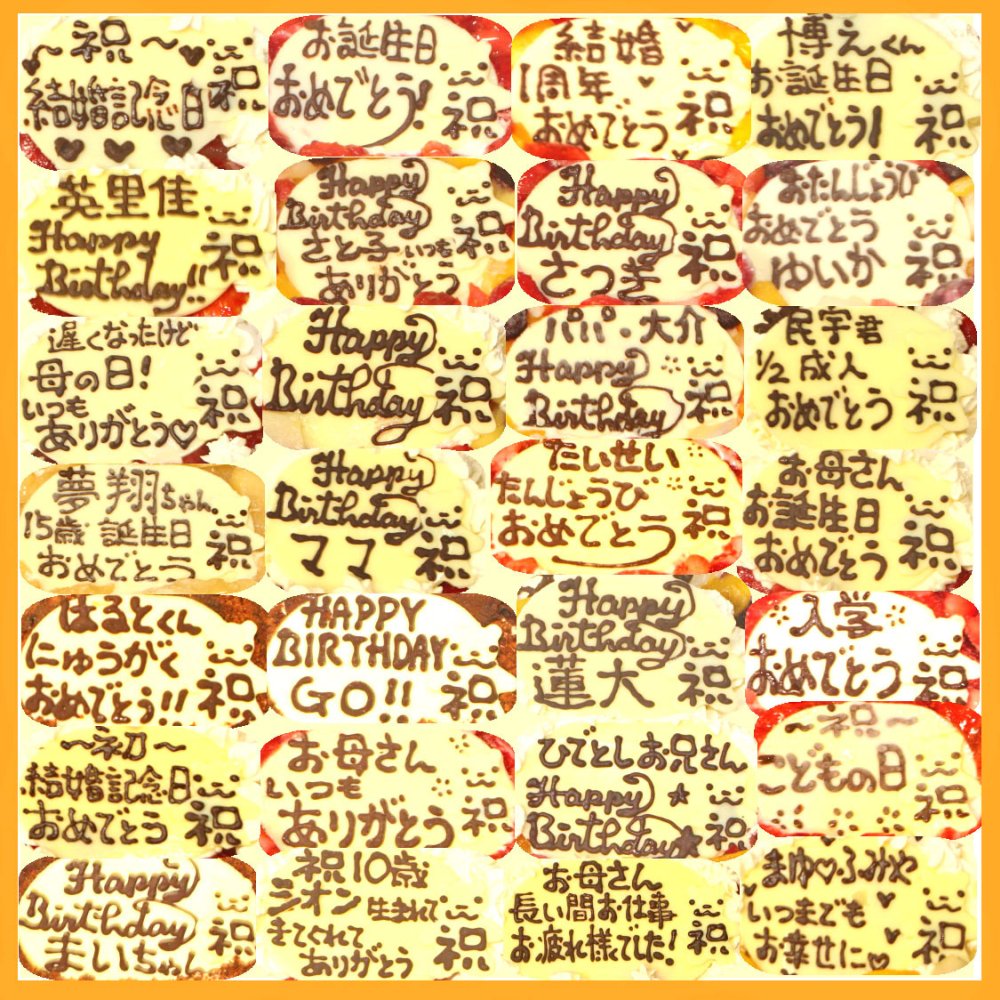 ~祝~
結婚記念日 祝
お誕生日
おめでとう! 祝
結婚
1周年
おめでとう 祝
博えくん
お誕生日
おめでとう! 祝
英里佳
Happy
Birthday!! 祝
Happy
Birthday
さと子いつも
ありがとう 祝
Happy
Birthday
さつき 祝
おたんじょうび
おめでとう
ゆいか 祝
遅くなったけど
母の日!
いつも
ありがとう♡ 祝
Happy
Birthday 祝
パパ・大介
Happy
Birthday 祝
民宇君
1/2成人
おめでとう 祝
夢翔ちゃん
15歳 誕生日
おめでとう 祝
Happy
Birthday
ママ 祝
たいせい
たんじょうび
おめでとう 祝
お母さん
お誕生日
おめでとう 祝
はるとくん
にゅうがく
おめでとう!! 祝
HAPPY
BIRTHDAY
GO!! 祝
Happy
Birthday
蓮大 祝
入学
おめでとう 祝
~初~
結婚記念日
おめでとう 祝
お母さん
いつも
ありがとう 祝
ひでとしお兄さん
Happy
Birthday 祝
~祝~
こどもの日 祝
Happy
Birthday
まいちゃん 祝
祝10歳
ジオン 生まれて
きてくれて
ありがとう 祝
お母さん
長い間お仕事
お疲れ様でした! 祝
まゆ♡ふみや
いつまでも
お幸せに♡ 祝